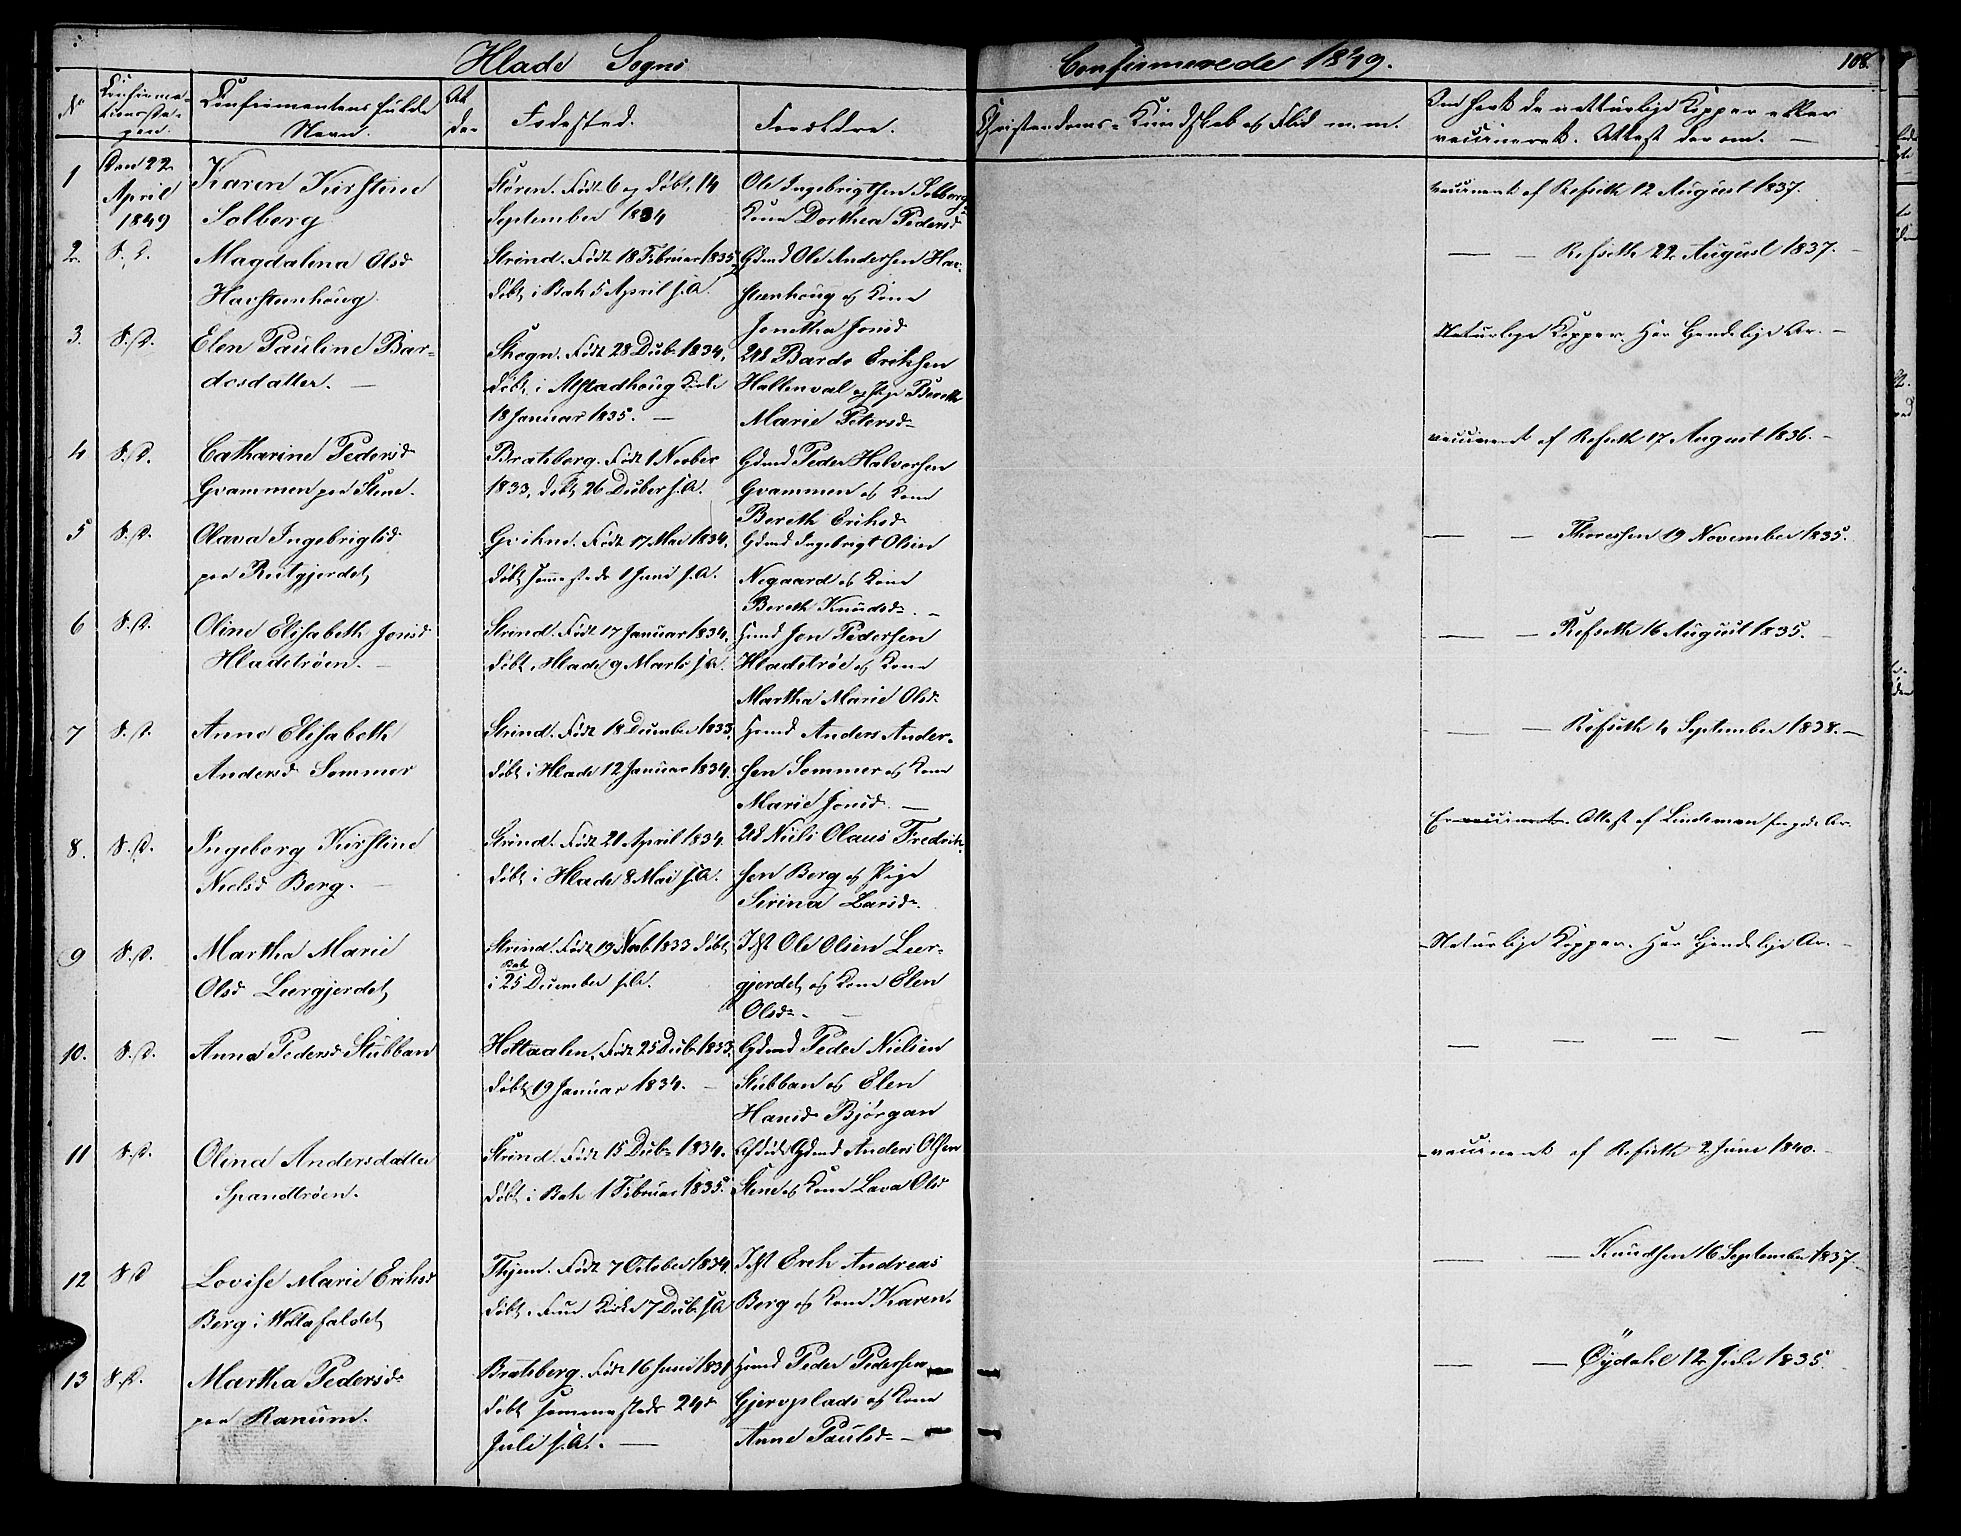 Hlade Sogns
Confirmerede 1849.
108.
No
Confirma-
tionsda-
gen.
Confirmantens fulde
Navn.
Al
der
Fødested.
Forældre.
Christendoms-Kundskab og Flid m.m.
Om havt de naturlige Kopper eller
vaccineret. Attest derom. —
1
Den 22
April
1849
Karen Kirstine
Solberg
Støren. Født 6 og døbt 14
September 1834
Ole Ingebrigtsen Solberg
Kone Dorthea Pedersd
vaccineret af Refseth 12 August 1837.
2.
S. D.
Magdalena Olsd
Havstenhoug
Strind. Født 18 Februar 1835,
døbt i Bak 5 April s.A.
Gdmd Ole Andersen Hav-
stenhoug og Kone
Jonetha Jonsd
— — Refseth 22 August 1837. —
3.
S. D.
Elen Pauline Bar-
dosdatter. —
Skogn. Født 28 Decbr 1834,
døbt i Alstadhoug Kirke
18 Januar 1835. —
Uæ Bardo Eriksen
Hallenval og Pige Bereth
Marie Petersd
Naturlige Kopper. Har kjendelige Ar. —
4
S. D.
Catharine Pedersd
Grammen paa Stene.
Bratsberg. Født 1 Novber
1833, døbt 26 Decber s.A.
Gdmd Peder Halvorsen
Grammen og Kone
Bereth Eriksd
vaccineret af Refseth 17 August 1836. —
5
S. D.
Olava Ingebrigtsd
paa Reitgjerdet
Grihne. Født 17 Mai 1834.
døbt sammesteds 1 Juni s.A.
Gdmd Ingebrigt Olsen
Negaard og Kone
Bereth Knudsd. —
— — Thoresen 19 November 1835.
6
S. D.
Oline Elisabeth Jonsd
Hladetrøen. —
Strind. Født 17 Januar 1834.
døbt i Hlade 9 Marts s.A.
Huusmd Jon Pedersen
Hladetrøe og Kone
Martha Marie Olsd
— — Refseth 16 August 1835. —
7
S. D.
Anne Elisabeth
Andersd Sommer
Strind. Født 18 December 1833.
døbt i Hlade 12 Januar 1834.
Huusmd Anders Ander-
sen Sommer og Kone
Marie Jonsd. —
— — Refseth 4 September 1838. —
8.
S. D.
Ingeborg Kirstine
Nielsd Berg. —
Strind. Født 21 April 1834.
døbt i Hlade 8 Mai s.A.
Uæ Niels Olaus Fredrik-
sen Berg og Pige
Sirina Larsd.
Er vaccineret. Attest af Lindeman
9
S. D.
Martha Marie
Olsd Leergjerdet
Strind. Født 19 Novb. 1833 døbt
i Bak 25 December s.A.
Idst Ole Olsen Leer-
gjerdet og Kone Elen
Olsd. —
Naturlige Kopper. Har kjendelige Ar. —
10.
S. D.
Anna Pedersd Stubban
Holtaalen. Født 25 Decbr 1833.
døbt 19 Januar 1834. —
Gdmd Peder Nielsen
Stubban og Elen
Hansd Bjørgan
— — — — —
11
S. D.
Olina Andersdatter
Spandtrøen.
Strind. Født 15 Decbr 1834.
døbt i Bak 1 Februar 1835.
Afdøde Gdmd Anders Olsen
Stene og Kone Lava Olsd
vaccineret af Refseth 2 Juni 1840. —
12
S. D.
Lovise Marie Eriksd
Berg i Wollafaldet
Thjem. Født 7 October 1834.
døbt i Frue Kirke 7 Decbr s.A.
Idst Erik Andreas
Berg og Kone Karen.
— — Knudsen 16 September 1837. —
13
S. D.
Martha Pedersd
paa Ranum.
Bratsberg. Født 16 Juni 1834
døbt sammesteds 24de
Juli s.A. —
Huusmd Peder Pedersen
Gjervplads og Kone
Anne Paulsd —
— — Øydahl 12 Juli 1835.